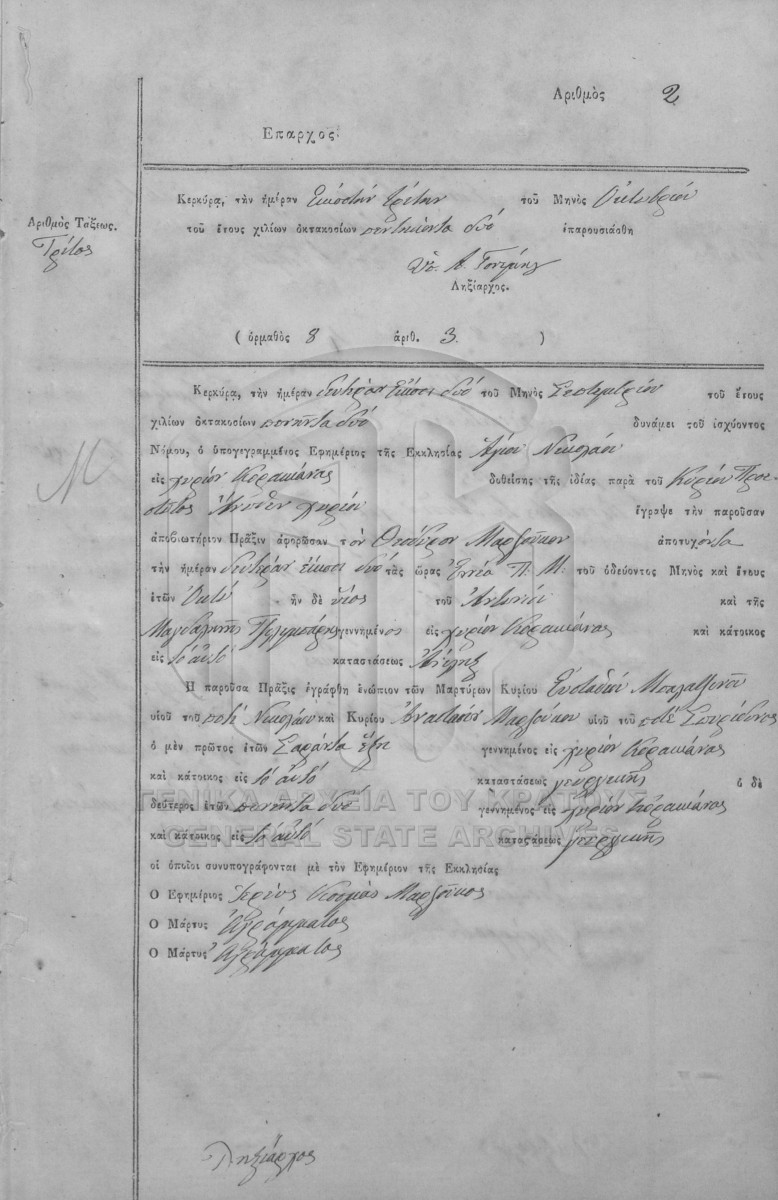 Αριθμὸς 2
Επαρχος:
Κερκύρᾳ, τὴν ἡμέραν Εικοστὴν τρίτην τοῦ Μηνὸς Οκτωβρίου
Αριθμὸς Τάξεως.
Τρίτος
τοῦ ἔτους χιλίων ὀκτακοσίων πεντήκοντα δυό ἐπαρουσιάσθη
Ληξίαρχος.
( ὁρμαθὸς 8 ἀριθ. 3. )
Κερκύρᾳ, τὴν ἡμέραν δευτέραν Εἴκοσι δυό τοῦ Μηνὸς Σεπτεμβρίου τοῦ ἔτους
χιλίων ὀκτακοσίων πενῆντα δυό δυνάμει τοῦ ἰσχύοντος
Νόμου, ὁ ὑπογεγραμμένος Εφημέριος τῆς Εκκλησίας Ἁγίου Νικολάου
Μ
εἰς χωρίον Κορακιάνας δοθείσης τῆς ἰδίας παρὰ τοῦ Κυρίου Προε-
στῶτος Ἄνωθεν χωρίου ἔγραψε τὴν παροῦσαν
ἀποβιωτήριον Πρᾶξιν ἀφορῶσαν τὸν Θεόδωρον Μαρζοῦκον ἀποτυχόντα
τὴν ἡμέραν δευτέραν Εἴκοσι δυό τὰς ὥρας Ἐννέα Π. Μ: τοῦ ὁδεύοντος Μηνὸς καὶ ἔτους
ἐτῶν Ὀκτώ ἦν δὲ υἱὸς τοῦ Ἀντωνίου καὶ τῆς
Μαγδαληνῆς γεννημένος εἰς χωρίον Κορακιάνας καὶ κάτοικος
εἰς τὸ αὐτό καταστάσεως Ἀνήλιξ
Η παροῦσα Πρᾶξις ἐγράφθη ἐνώπιον τῶν Μαρτύρων Κυρίου Εὐσταθίου
υἱοῦ τοῦ ποτὲ Νικολάου καὶ Κυρίου Ἀναστασίου Μαρζούκου υἱοῦ τοῦ ποτὲ Σπυρίδωνος
ὁ μὲν πρῶτος ἐτῶν Σαράντα ἕξη γεννημένος εἰς χωρίον Κορακιάνας
καὶ κάτοικος εἰς τὸ αὐτό καταστάσεως γεωργικῆς ὁ δὲ
δεύτερος ἐτῶν πενῆντα δυό γεννημένος εἰς χωρίον Κορακιάνας
καὶ κάτοικος εἰς τὸ αὐτό καταστάσεως γεωργικῆς
οἱ ὁποῖοι συνυπογράφονται μὲ τὸν Εφημέριον τῆς Εκκλησίας
Ο Εφημέριος Ἱερεὺς Κοσμᾶς Μαρζοῦκος
Ο Μάρτυς Ἀγράμματος
Ο Μάρτυς Ἀγράμματος
Ληξίαρχος
ΓΕΝΙΚΑ ΑΡΧΕΙΑ ΤΟΥ ΚΡΑΤΟΥΣ
GENERAL STATE ARCHIVES